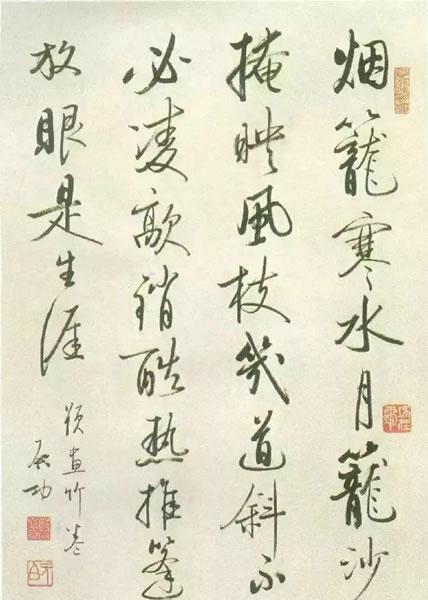 烟籠寒水月籠沙
掩映風枝幾道斜不
必凌歊銷酷热推篷
放眼是生涯
題画竹卷
启功